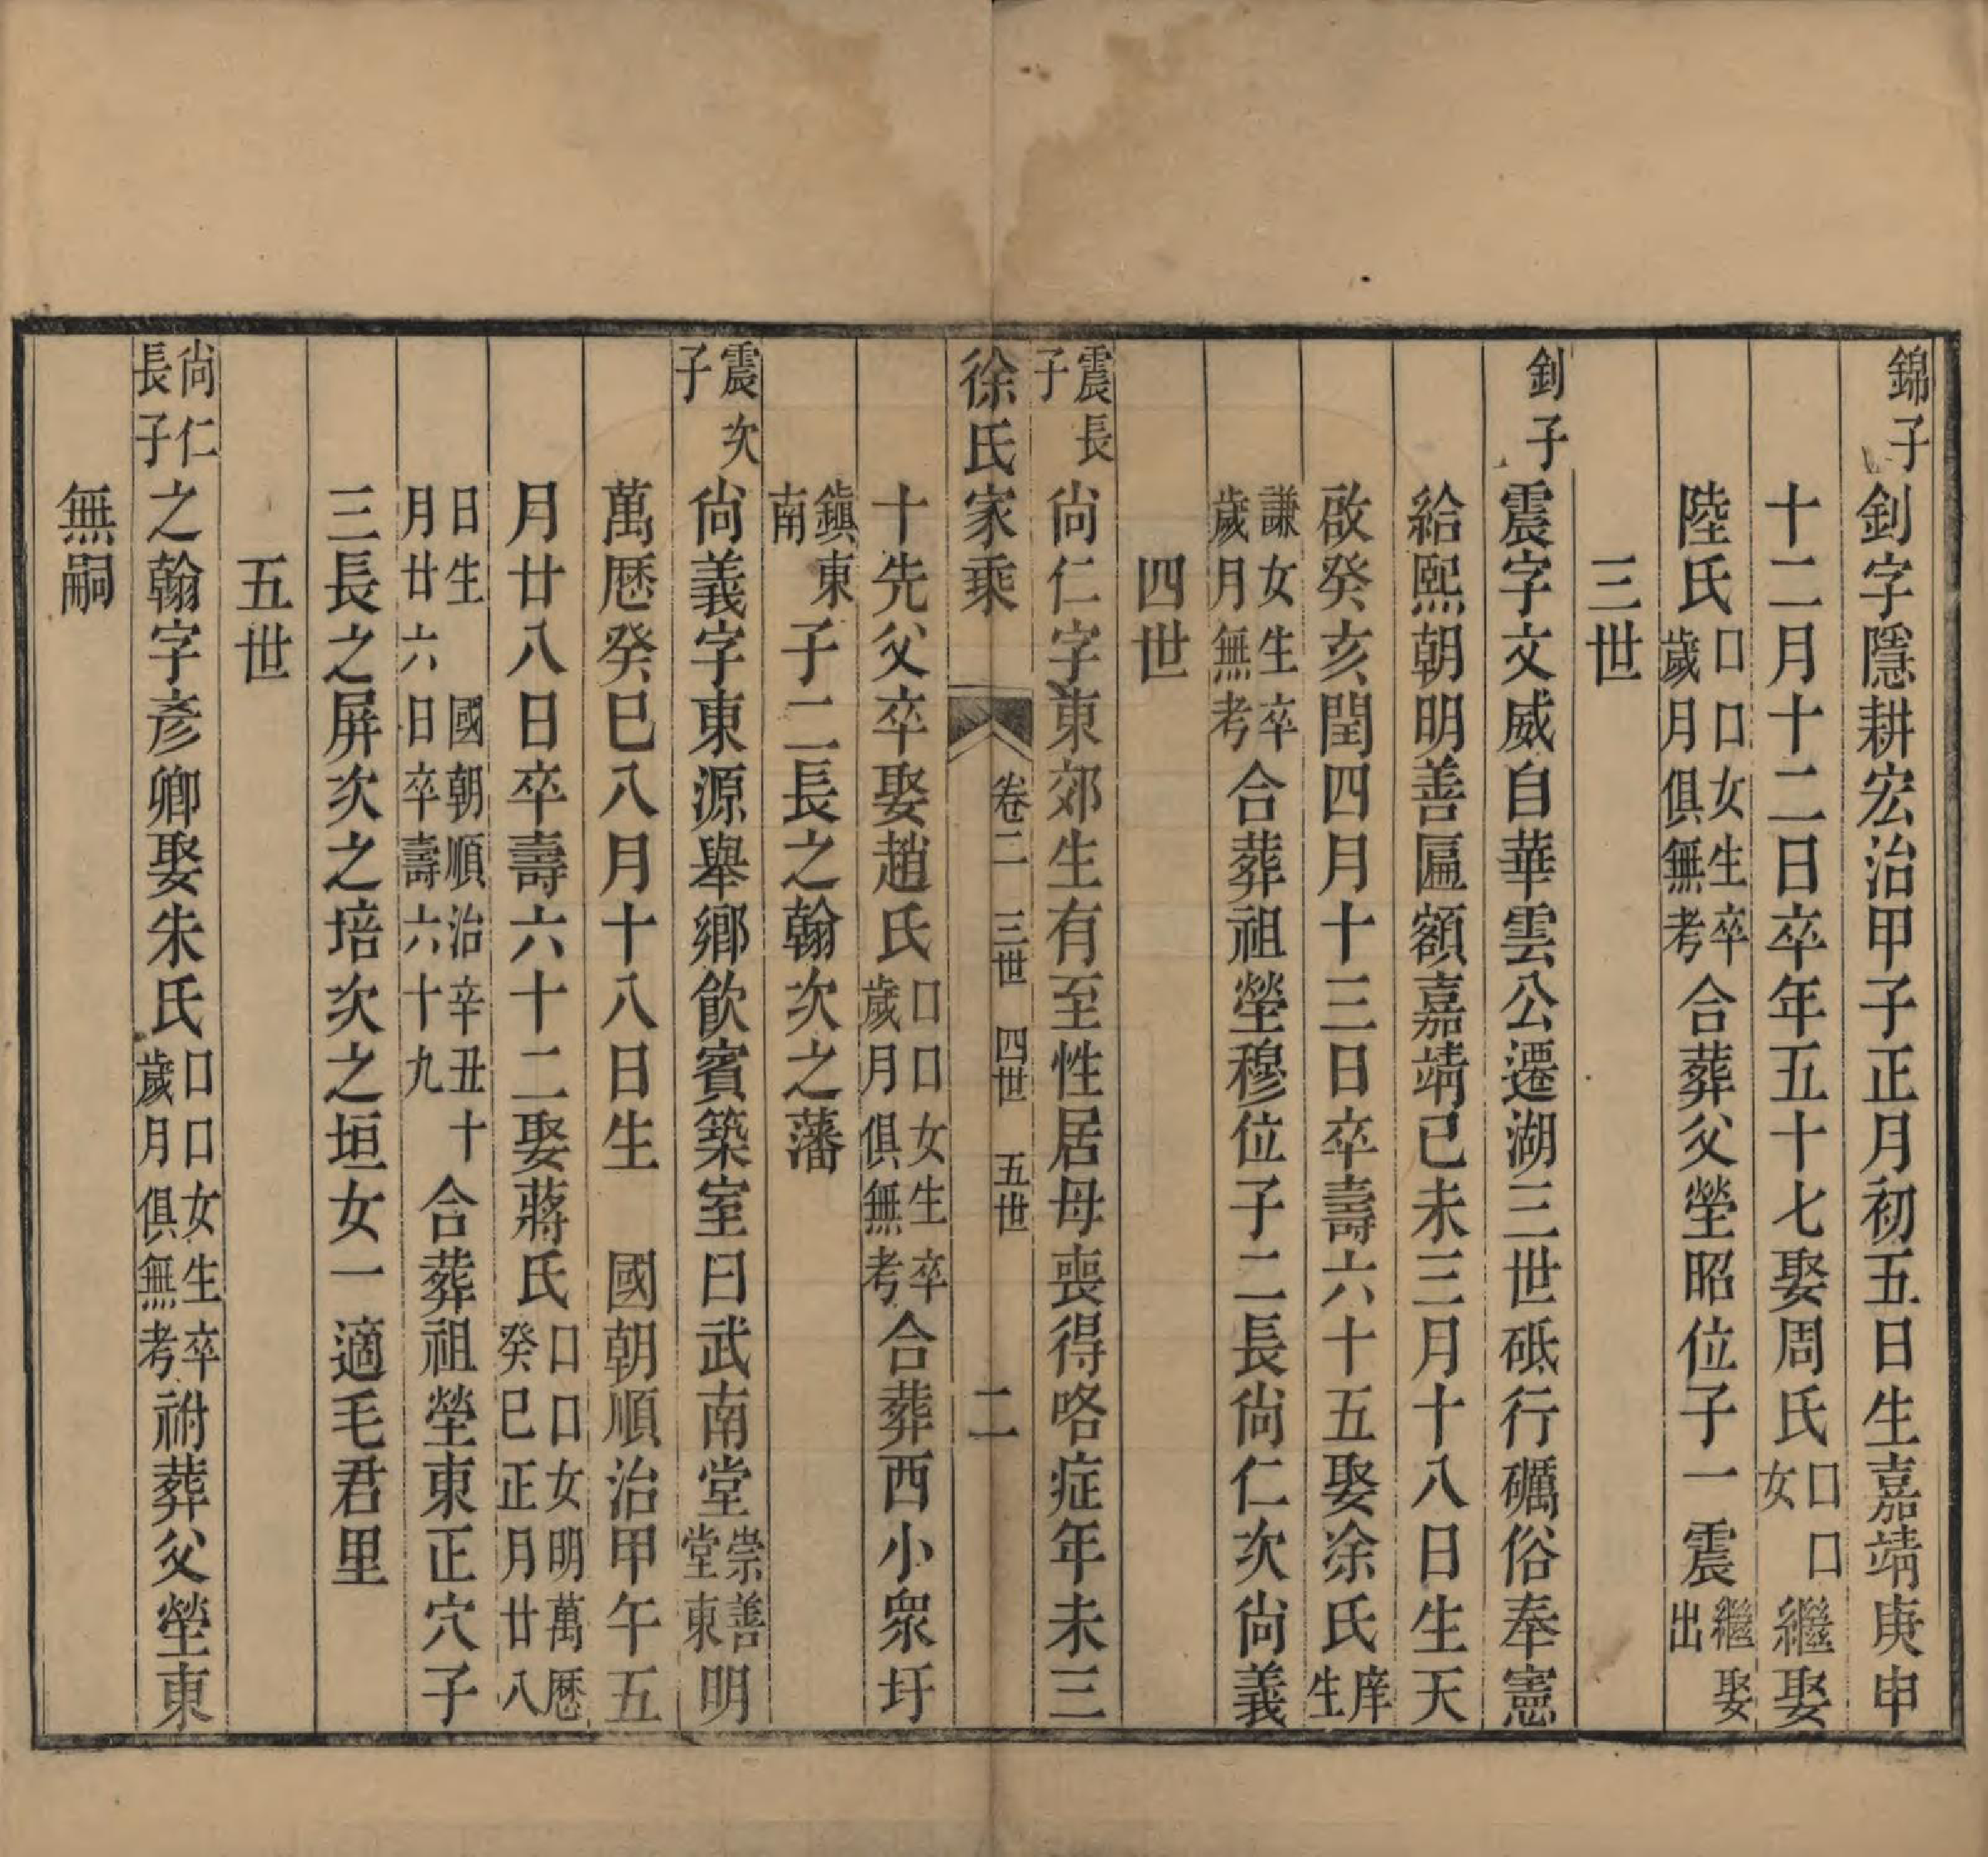 錦子釗字隱耕宏治甲子正月初五日生嘉靖庚申
十二月十二日卒年五十七娶周氏口口女繼娶
陸氏口口女生卒歲月俱無考合葬父塋昭位子一震繼娶出
三世
釗子震字文威自華雲公遷湖三世砥行礪俗奉憲
給熙朝明善匾額嘉靖己未三月十八日生天
啟癸亥閏四月十三日卒壽六十五娶涂氏庠生
謙女生卒歲月無考合葬祖塋穆位子二長尙仁次尙義
四世
震長子尙仁字東郊生有至性居母喪得咯症年未三
徐氏家乘 卷二 三世 四世 五世 二
十先父卒娶趙氏口口女生卒歲月俱無考合葬西小衆圩
鎮東南子二長之翰次之藩
震次子尙義字東源舉鄉飲賓築室曰武南堂崇善堂東明
萬厯癸巳八月十八日生 國朝順治甲午五
月廿八日卒壽六十二娶蔣氏口口女明萬厯癸巳正月廿八
日生 國朝順治辛丑十月廿六日卒壽六十九合葬祖塋東正穴子
三長之屏次之培次之垣女一適毛君里
五世
尙仁長子之翰字彥卿娶朱氏口口女生卒歲月俱無考祔葬父塋東
無嗣